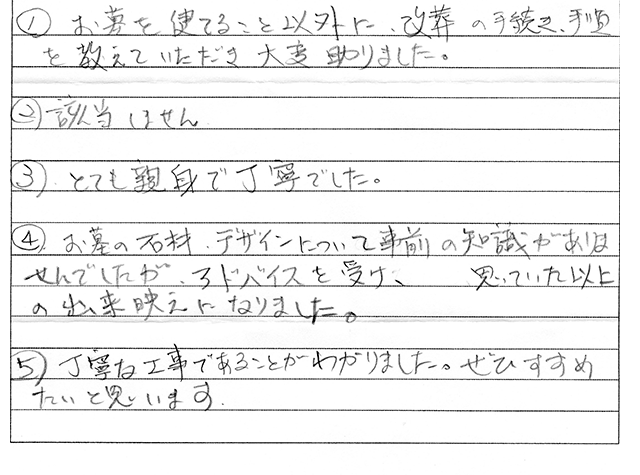 ① お墓を建てること以外に、改葬の手続き、手順
を教えていただき大変助かりました。
② 該当しません
③ とても親身で丁寧でした。
④ お墓の石材、デザインについて事前の知識がありま
せんでしたが、アドバイスを受け、思っていた以上
の出来映えになりました。
⑤ 丁寧な工事であることがわかりました。ぜひすすめ
たいと思います.